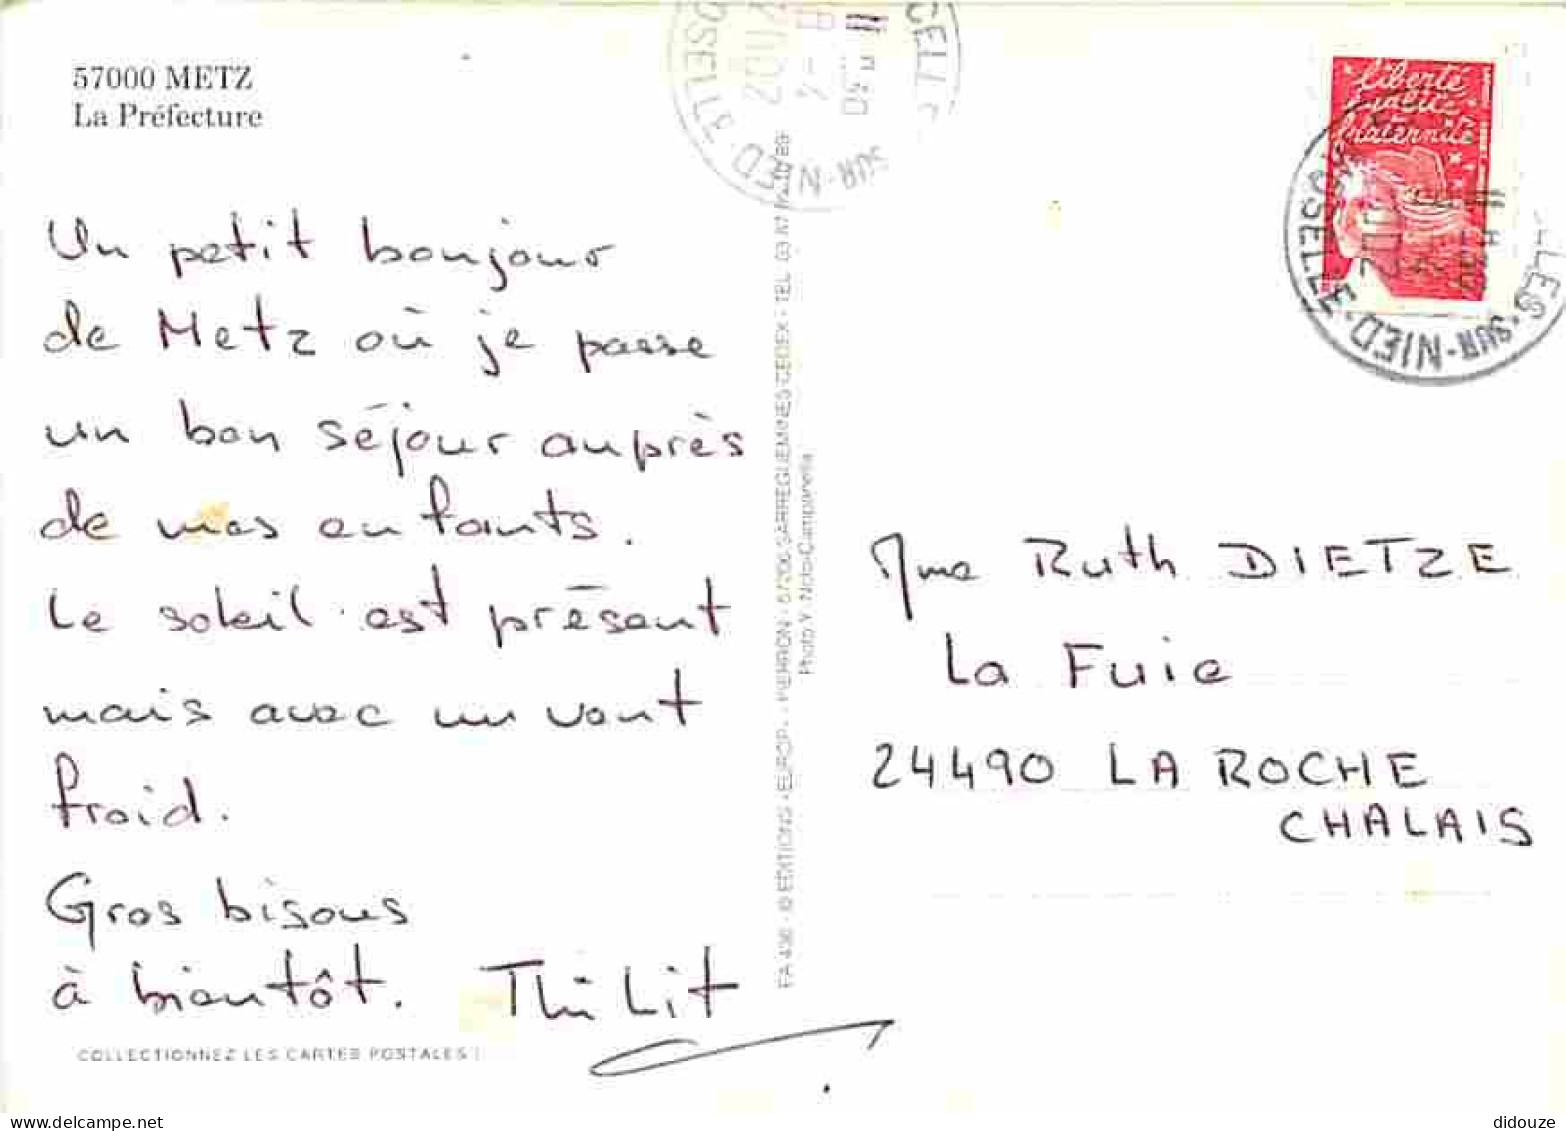 57000 METZ
La Préfecture
Un petit bonjour
de Metz où je passe
un bon séjour auprès
de mes enfants.
Le soleil est présent
mais avec un vent
froid.
Gros bisous
à bientôt.
COLLECTIONNEZ LES CARTES POSTALES !
EDITIONS "EUROP" - PIERRON - 57206 SARREGUEMINES CEDEX - TEL
Photo Y. Noto-Campanella
SUR-NIED
2002
liberté
égalité
fraternité
SUR-NIED·MOSELLE
2002
Mme Ruth DIETZE
La Fuie
24490 LA ROCHE
CHALAIS
didouze